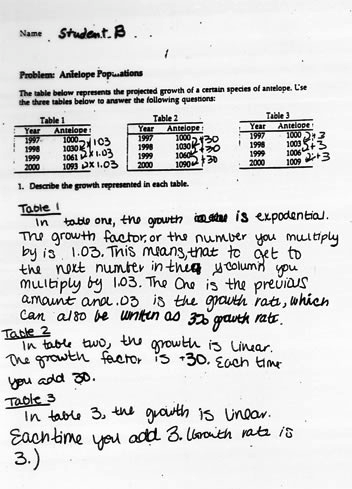 Name Student B
1
Problem: Antelope Populations
The table below represents the projected growth of a certain species of antelope. Use
the three tables below to answer the following questions:
Table 1 Table 2 Table 3
Year Antelope Year Antelope Year Antelope
1997 1000 1997 1000 1997 1000
1998 1030 x1.03 1998 1030 +30 1998 1003 +3
1999 1061 x1.03 1999 1060 +30 1999 1006 +3
2000 1093 x1.03 2000 1090 +30 2000 1009 +3
1. Describe the growth represented in each table.
Table 1
In table one, the growth is expodential.
The growth factor, or the number you multiply
by is 1.03. This means, that to get to
the next number in the y column you
multiply by 1.03. The One is the previous
amount and .03 is the growth rate, which
can also be written as 3% growth rate.
Table 2
In table two, the growth is linear.
The growth factor is +30. Each time
you add 30.
Table 3
In table 3, the growth is linear.
Each time you add 3. (Growth rate is
3.)